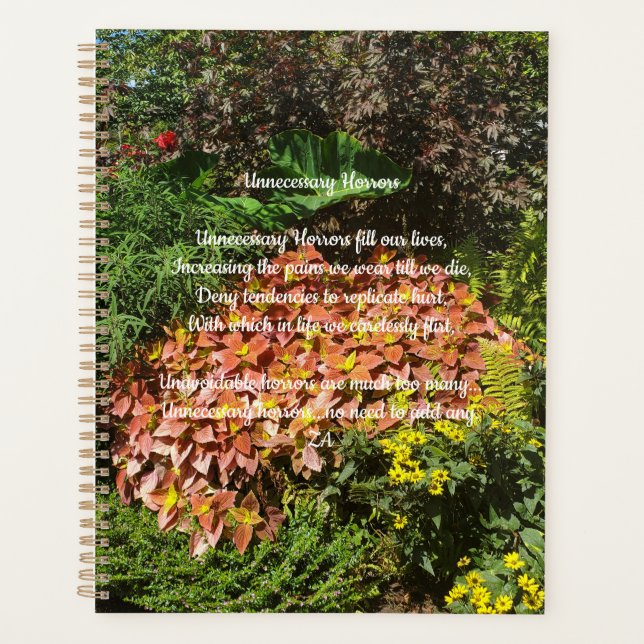 Unnecessary Horrors
Unnecessary Horrors fill our lives,
Increasing the pains we wear till we die,
Deny tendencies to replicate hurt,
With which in life we carelessly flirt,
Unavoidable horrors are much too many..
Unnecessary horrors...no need to add any.
ZA